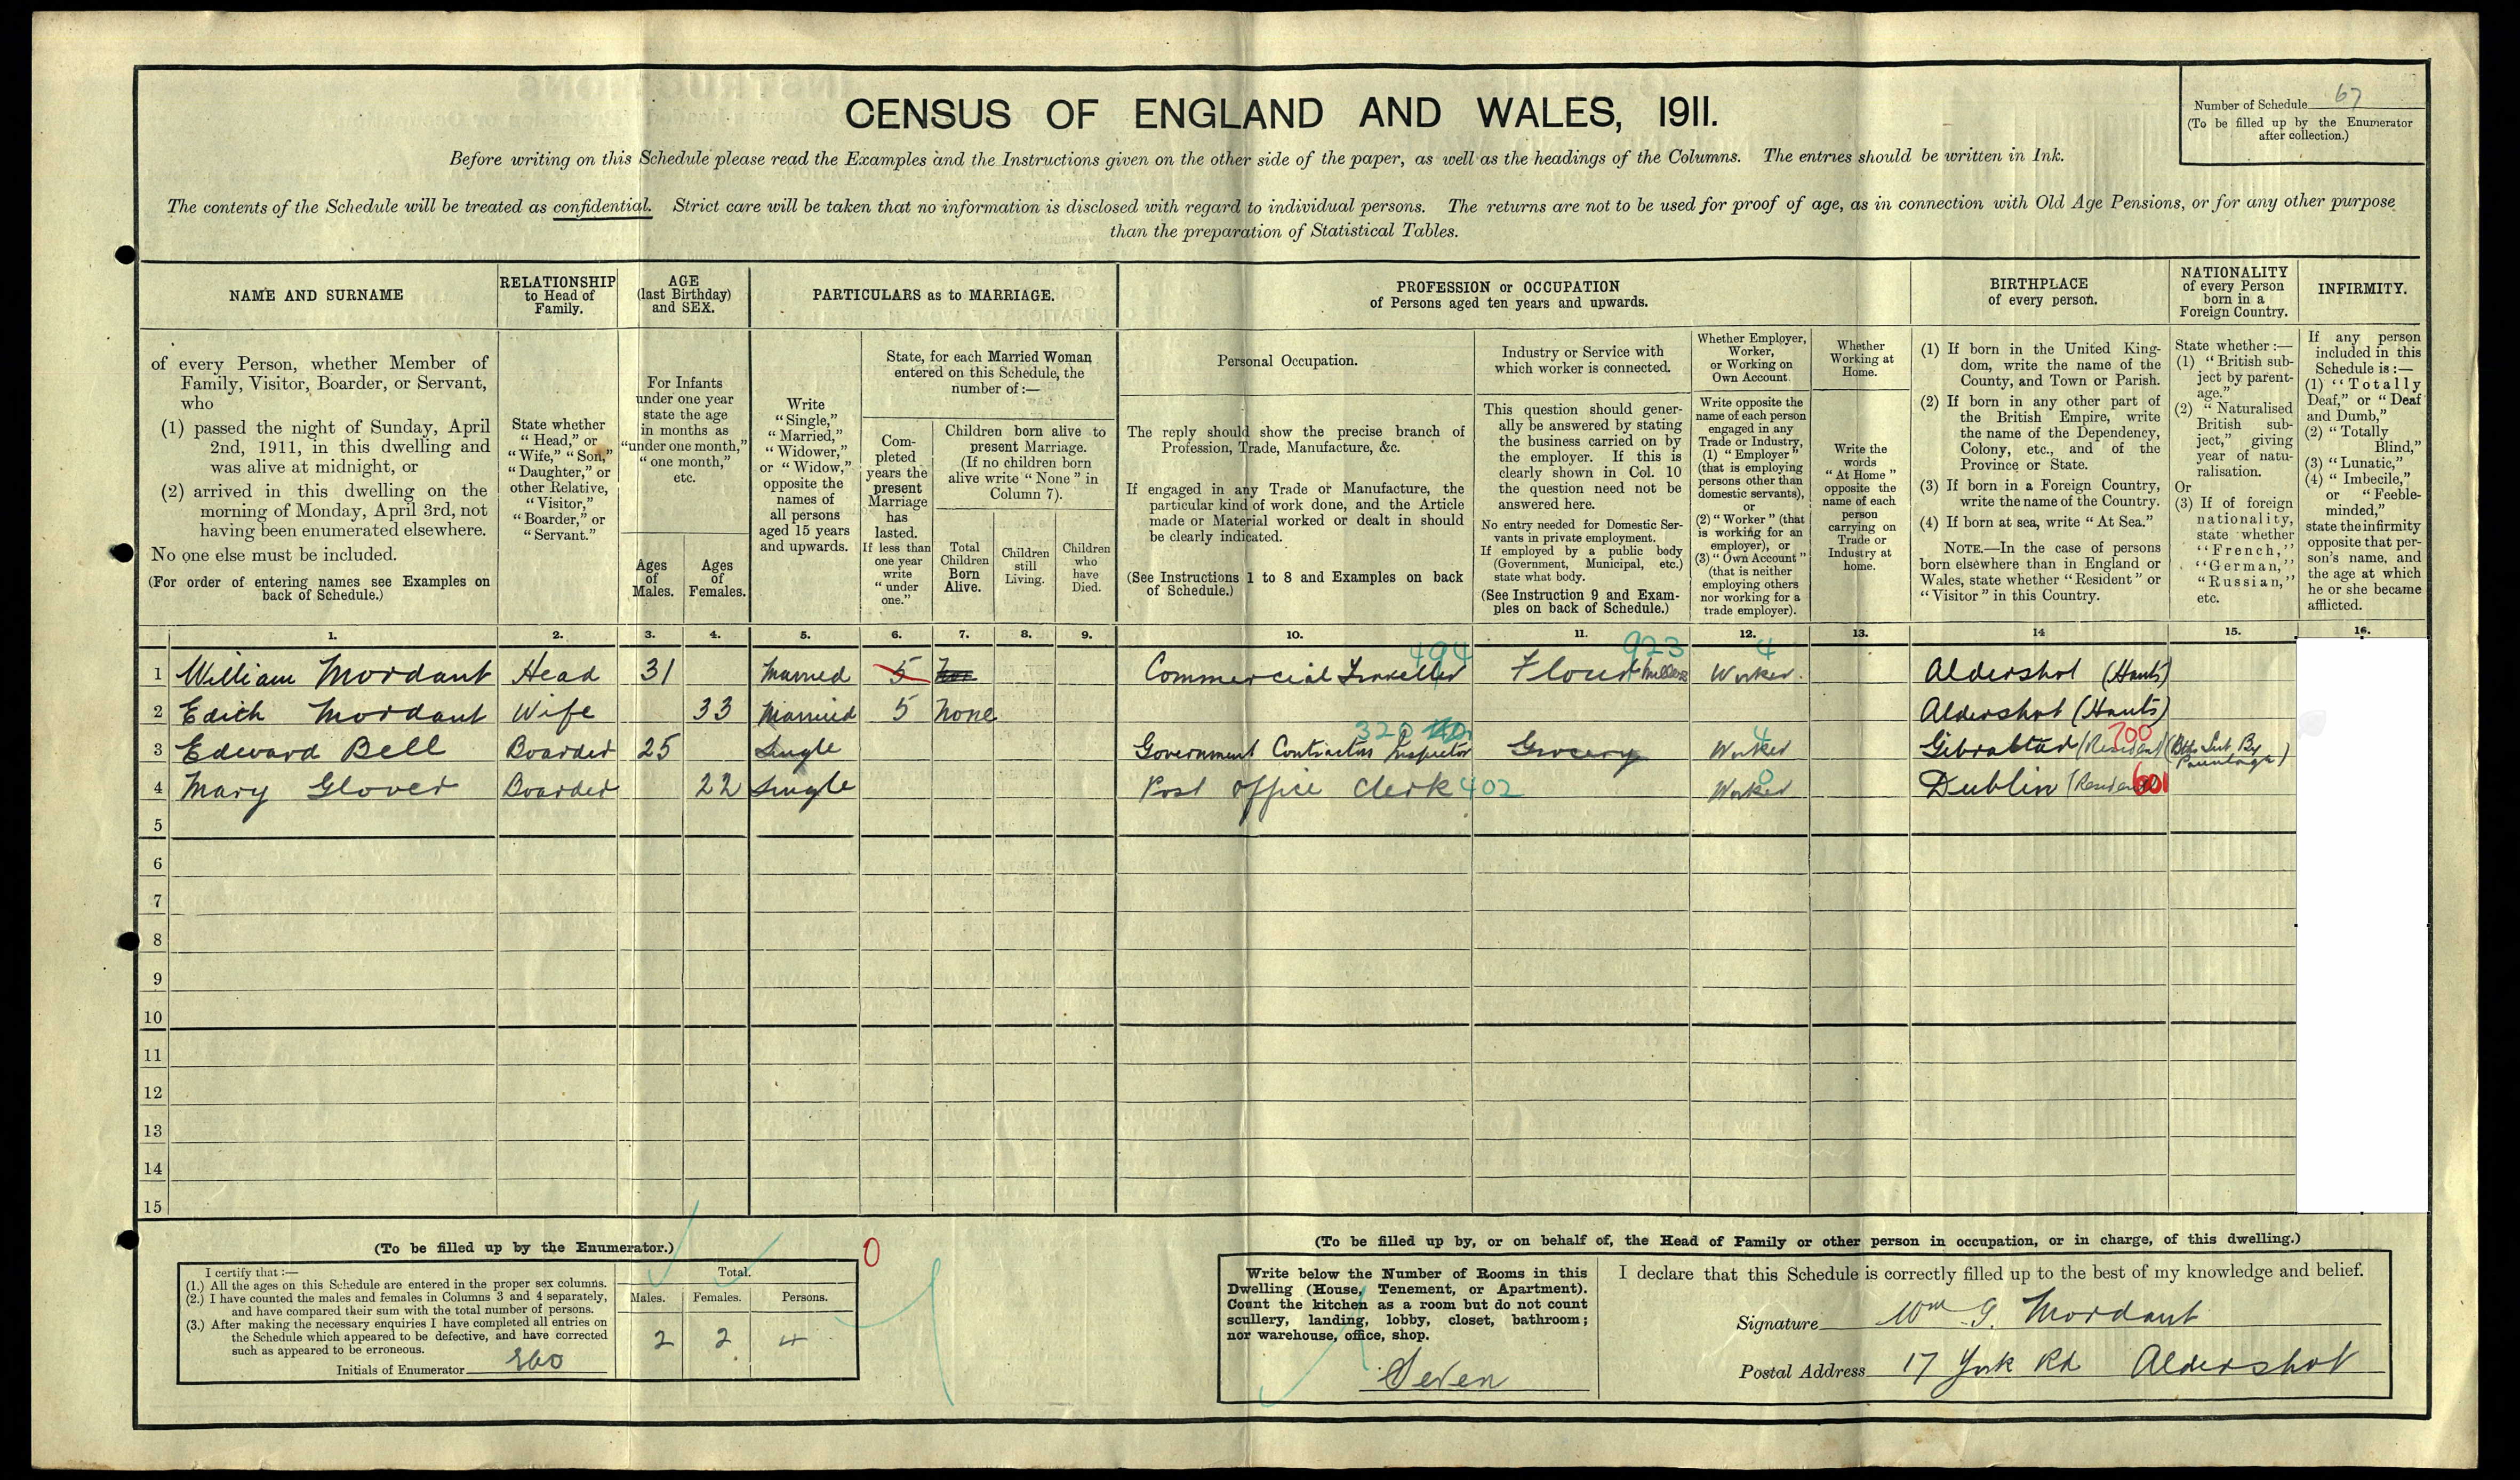 CENSUS OF ENGLAND AND WALES, 1911.
Number of Schedule 67
(To be filled up by the Enumerator
after collection.)
Before writing on this Schedule please read the Examples and the Instructions given on the other side of the paper, as well as the headings of the Columns. The entries should be written in Ink.
The contents of the Schedule will be treated as confidential. Strict care will be taken that no information is disclosed with regard to individual persons. The returns are not to be used for proof of age, as in connection with Old Age Pensions, or for any other purpose
than the preparation of Statistical Tables.
NAME AND SURNAME
of every Person, whether Member of
Family, Visitor, Boarder, or Servant,
who
(1) passed the night of Sunday, April
2nd, 1911, in this dwelling and
was alive at midnight, or
(2) arrived in this dwelling on the
morning of Monday, April 3rd, not
having been enumerated elsewhere.
No one else must be included.
(For order of entering names see Examples on
back of Schedule.)
RELATIONSHIP
to Head of
Family.
State whether
"Head," or
"Wife," "Son,"
"Daughter," or
other Relative,
"Visitor,"
"Boarder," or
"Servant."
AGE
(last Birthday)
and SEX.
For Infants
under one year
state the age
in months as
"under one month,"
"one month,"
etc.
Ages
of
Males.
Ages
of
Females.
PARTICULARS as to MARRIAGE.
Write
"Single,"
"Married,"
"Widower,"
or "Widow,"
opposite the
names of
all persons
aged 15 years
and upwards.
State, for each Married Woman
entered on this Schedule, the
number of:—
Com-
pleted
years the
present
Marriage
has
lasted.
If less than
one year
write
"under
one."
Children born alive to
present Marriage.
(If no children born
alive write "None" in
Column 7).
Total
Children
Born
Alive.
Children
still
Living.
Children
who
have
Died.
PROFESSION or OCCUPATION
of Persons aged ten years and upwards.
Personal Occupation.
The reply should show the precise branch of
Profession, Trade, Manufacture, &c.
If engaged in any Trade or Manufacture, the
particular kind of work done, and the Article
made or Material worked or dealt in should
be clearly indicated.
(See Instructions 1 to 8 and Examples on back
of Schedule.)
Industry or Service with
which worker is connected.
This question should gener-
ally be answered by stating
the business carried on by
the employer. If this is
clearly shown in Col. 10
the question need not be
answered here.
No entry needed for Domestic Ser-
vants in private employment.
If employed by a public body
(Government, Municipal, etc.)
state what body.
(See Instruction 9 and Exam-
ples on back of Schedule.)
Whether Employer,
Worker,
or Working on
Own Account.
Write opposite the
name of each person
engaged in any
Trade or Industry,
(1) "Employer"
(that is employing
persons other than
domestic servants),
or
(2) "Worker" (that
is working for an
employer), or
(3) "Own Account"
(that is neither
employing others
nor working for a
trade employer).
Whether
Working at
Home.
Write the
words
"At Home"
opposite the
name of each
person
carrying on
Trade or
Industry at
home.
BIRTHPLACE
of every person.
(1) If born in the United King-
dom, write the name of the
County, and Town or Parish.
(2) If born in any other part of
the British Empire, write
the name of the Dependency,
Colony, etc., and of the
Province or State.
(3) If born in a Foreign Country,
write the name of the Country.
(4) If born at sea, write "At Sea."
NOTE.—In the case of persons
born elsewhere than in England or
Wales, state whether "Resident" or
"Visitor" in this Country.
NATIONALITY
of every Person
born in a
Foreign Country.
State whether :—
(1) "British sub-
ject by parent-
age."
(2) "Naturalised
British sub-
ject," giving
year of natu-
ralisation.
Or
(3) If of foreign
nationality,
state whether
"French,"
"German,"
"Russian,"
etc.
INFIRMITY.
If any person
included in this
Schedule is :—
(1) "Totally
Deaf," or "Deaf
and Dumb,"
(2) "Totally
Blind,"
(3) "Lunatic,"
(4) "Imbecile,"
or "Feeble-
minded,"
state the infirmity
opposite that per-
son's name, and
the age at which
he or she became
afflicted.
1. 2. 3. 4. 5. 6. 7. 8. 9. 10. 11. 12. 13. 14 15. 16.
494 923 4
1 William Mordant Head 31 Married 5 Commercial Traveller Flour Millers Worker. Aldershot (Hants)
2 Edith Mordant Wife 33 Married 5 None Aldershot (Hants)
320 4 700
3 Edward Bell Boarder 25 Single Government Contractors Inspector Grocery Worker Gibraltar (Resident) (Btsh Sub By Parentage)
4 Mary Glover Boarder 22 Single Post Office Clerk 402 Worker 0 Dublin (Resident) 601
5
6
7
8
9
10
11
12
13
14
15
(To be filled up by the Enumerator.)
I certify that :—
(1.) All the ages on this Schedule are entered in the proper sex columns.
(2.) I have counted the males and females in Columns 3 and 4 separately,
and have compared their sum with the total number of persons.
(3.) After making the necessary enquiries I have completed all entries on
the Schedule which appeared to be defective, and have corrected
such as appeared to be erroneous.
Initials of Enumerator
Total.
Males. Females. Persons.
2 2 4
0
(To be filled up by, or on behalf of, the Head of Family or other person in occupation, or in charge, of this dwelling.)
Write below the Number of Rooms in this
Dwelling (House, Tenement, or Apartment).
Count the kitchen as a room but do not count
scullery, landing, lobby, closet, bathroom;
nor warehouse, office, shop.
Seven
I declare that this Schedule is correctly filled up to the best of my knowledge and belief.
Signature Wm G. Mordant
Postal Address 17 York Rd Aldershot